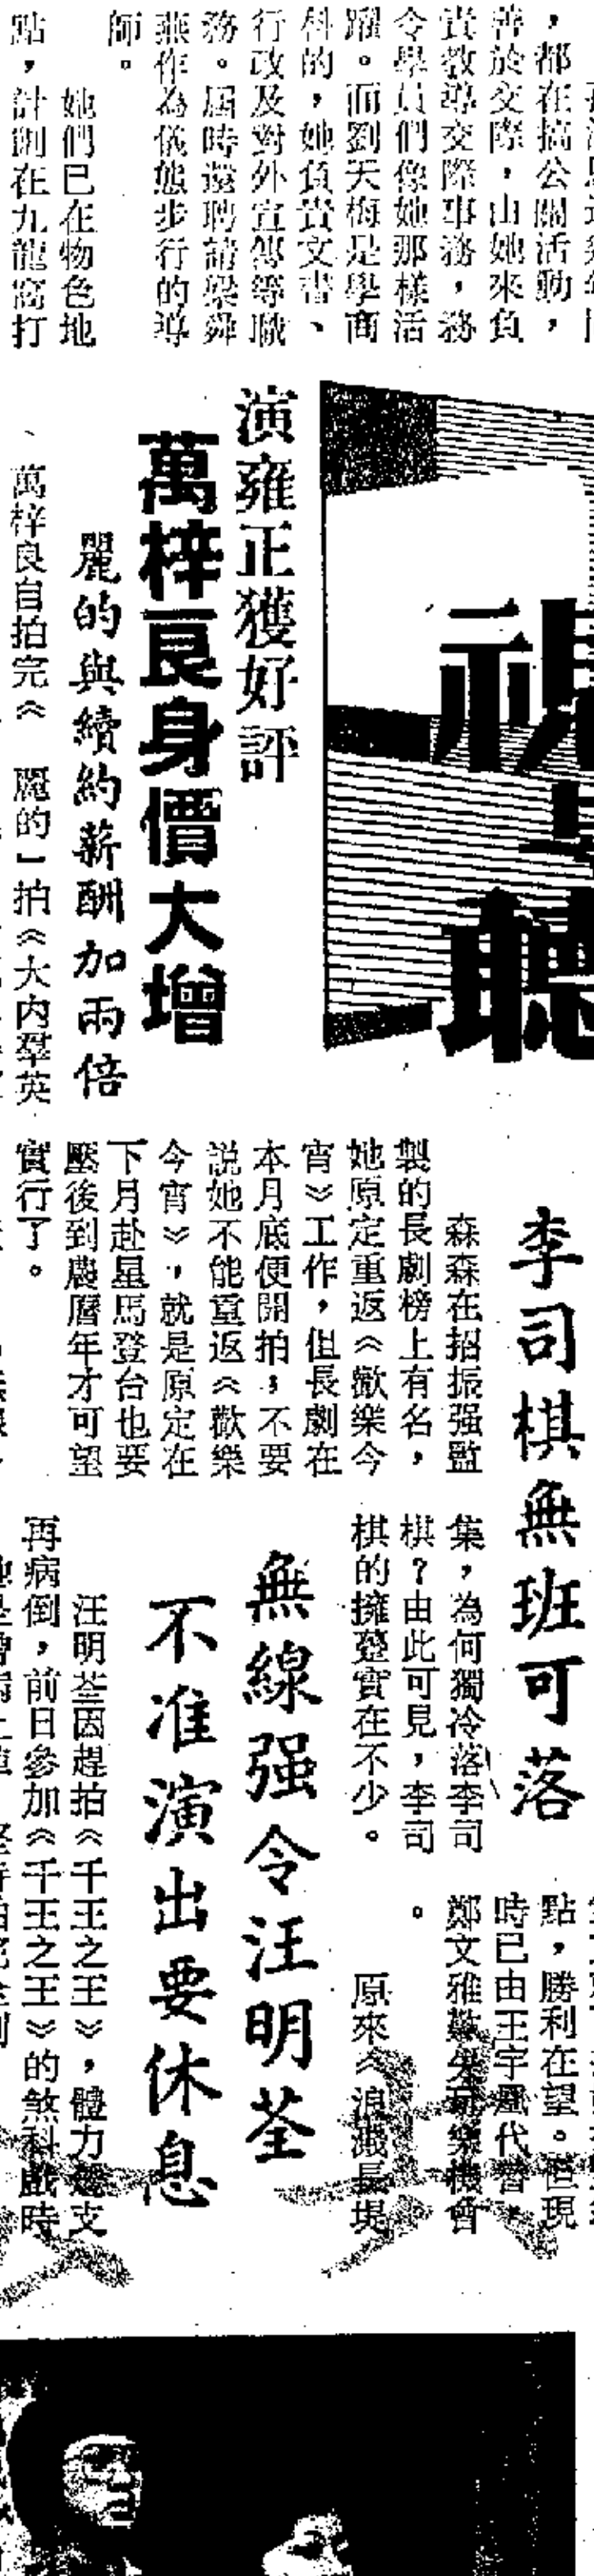 ，都在搞公關活動，
善於交際，由她來負
責教導交際事務，務
令學員們像她那樣活
躍。而劉天梅是學商
科的，她負責文書、
行政及對外宣傳等職
務。屆時還聘請梁舜
燕作為儀態步行的導
師。
她們已在物色地
點，計劃在九龍窩打
視
聽
演雍正獲好評
萬梓良身價大增
麗的與續約薪酬加兩倍
萬梓良自拍完《
麗的一拍《大內羣英
李司棋無班可落
森森在招振强監
製的長劇榜上有名，
她原定重返《歡樂今
宵》工作，但長劇在
本月底便開拍，不要
說她不能重返《歡樂
今宵》，就是原定在
下月赴星馬登台也要
壓後到農曆年才可望
實行了。
集，為何獨冷落李司
棋？由此可見，李司
棋的擁躉實在不少。
點，勝利在望。但現
時已由王宇風代替，
鄭文雅歎失玩樂機會
。
原來《浪濺長堤
無線强令汪明荃
不准演出要休息
汪明荃因趕拍《千王之王》，體力難支
再病倒，前日參加《千王之王》的煞科戲時